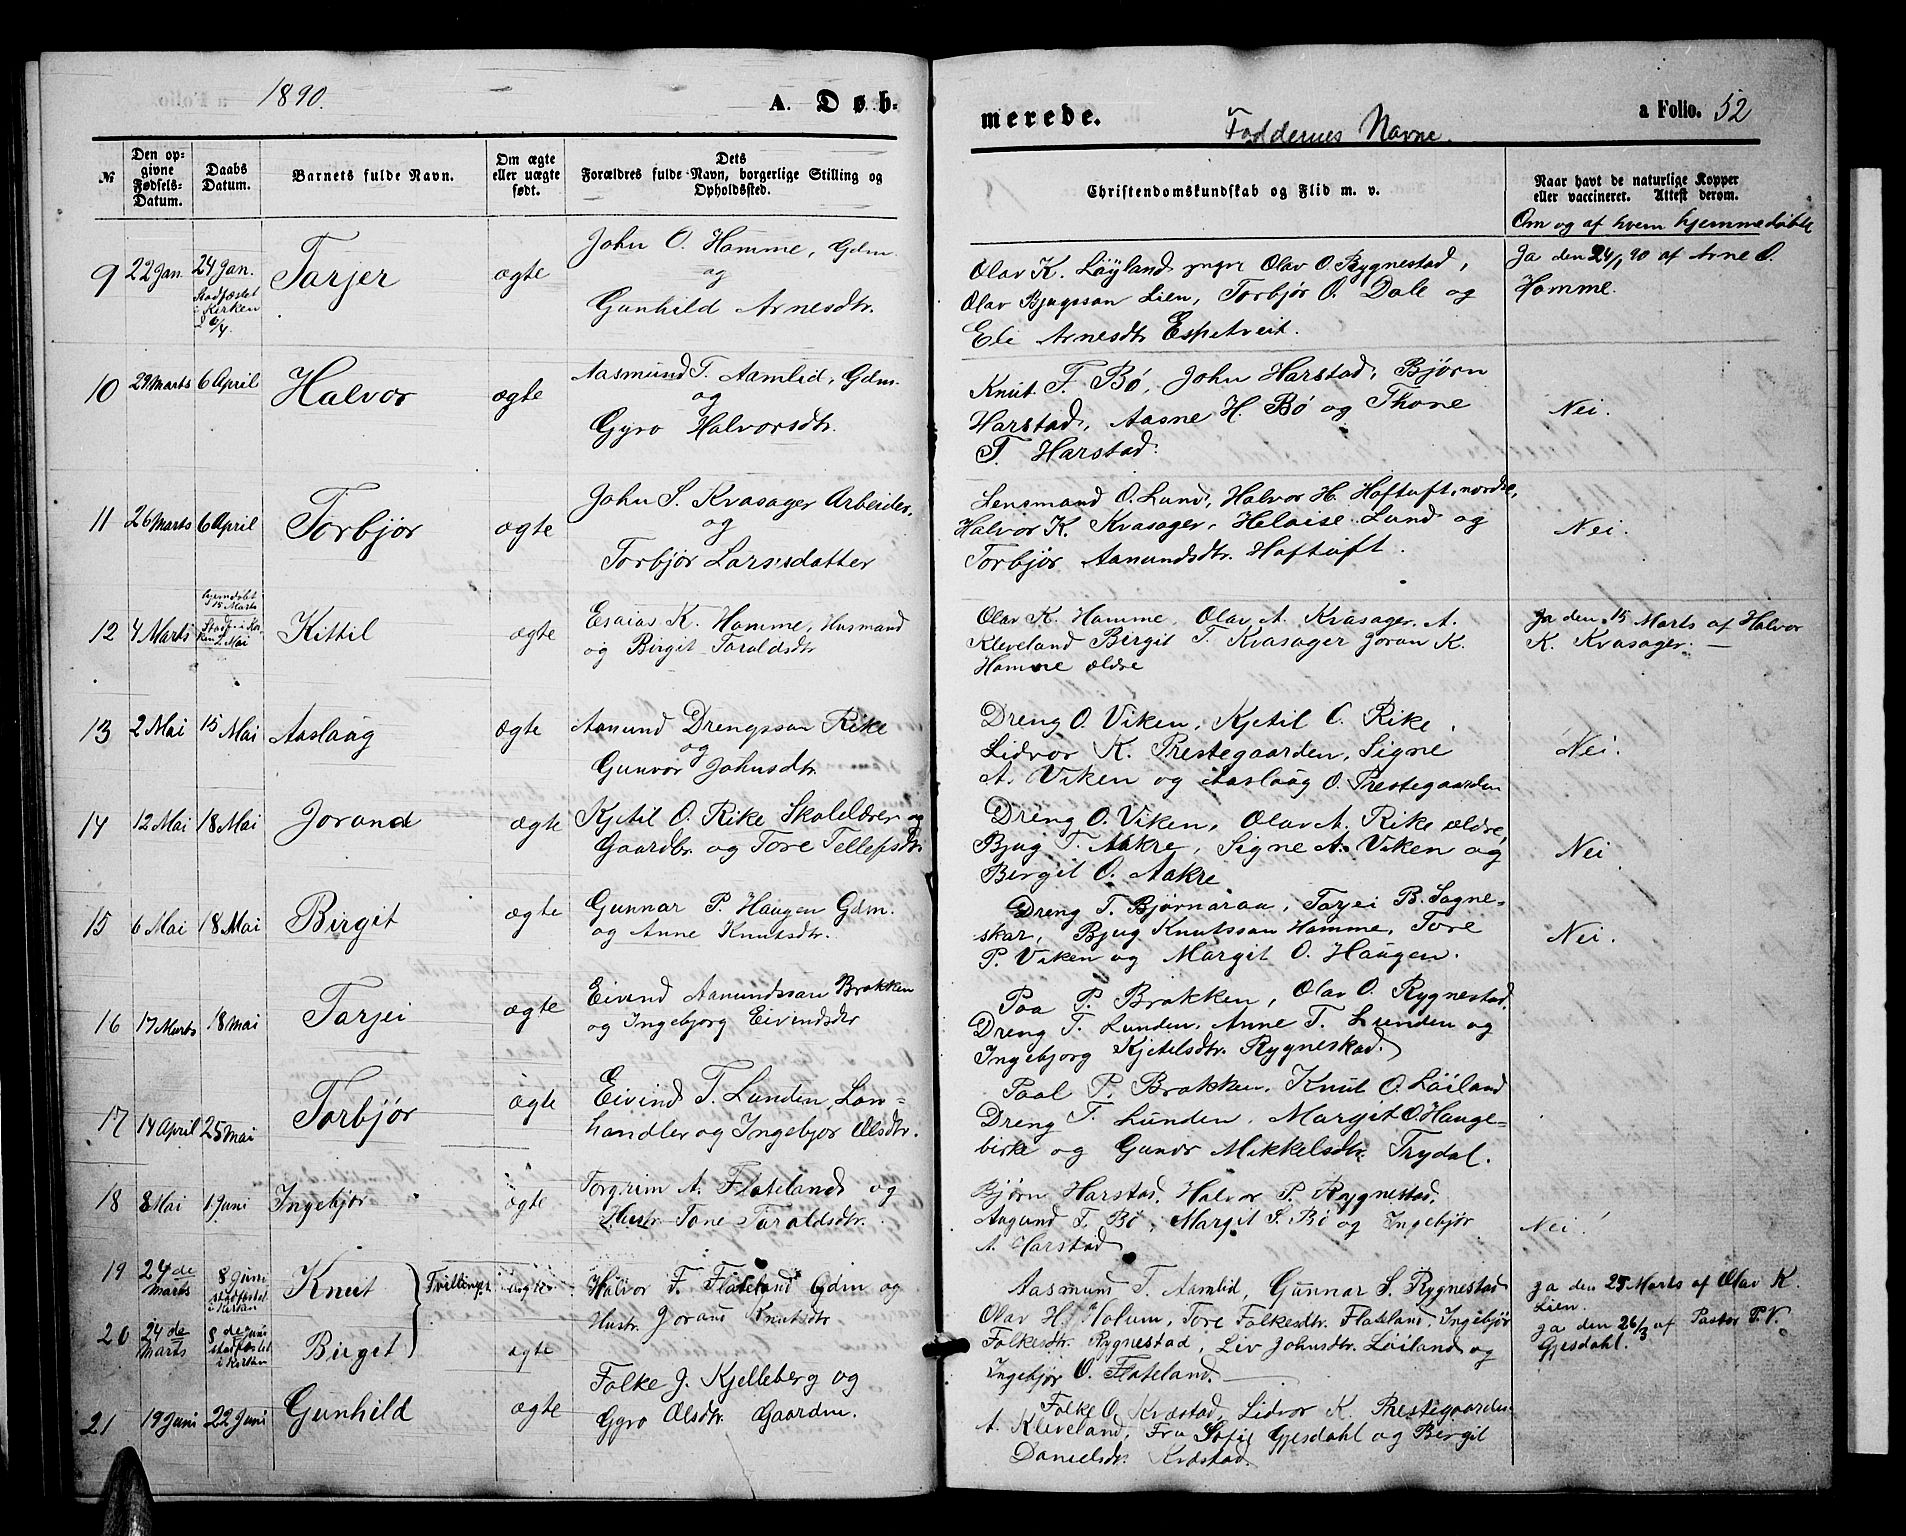 1890.
A. Døb-
merede.
Faddernes Navne.
a Folio. 52
№
Den op-
givne
Fødsels-
Datum.
Daabs
Datum.
Barnets fulde Navn.
Om ægte
eller uægte
født.
Dets
Forældres fulde Navn, borgerlige Stilling og
Opholdssted.
Christendomskundskab og Flid m. v.
Naar havt de naturlige Kopper
eller vaccineret. Attest derom.
Om og af hvem hjemmedøbt
9 22 Jan. 24 Jan. Tarjer ægte
Stadfæstet
i Kirken
d 6/4.
John O. Homme, Gdm.
og
Gunhild Arnesdtr.
Olav K. Løyland yngre Olav O. Rygnestad,
Olav Bjugsson Lien, Torbjør O. Dale og
Eli Arnesdtr Espetveit.
Ja den 24/1 90 af Arne O.
Homme.
10 29 Marts 6 April Halvor ægte
Aasmund T. Aamlid, Gdm.
og
Gyro Halvorsdtr.
Knut F. Bø, John Harstad, Bjørn
Harstad, Aasne H. Bø og Thone
T. Harstad.
Nei.
11 26 Marts 6 April Torbjør ægte
John S. Kvasager Arbeider,
og
Torbjør Larsdatter
Lensmand O. Lund, Halvor H. Hoftuft, nordre,
Halvor K. Kvasager, Heloise Lund og
Torbjør Aanundsdtr. Hoftuft.
Nei.
12 4 Marts
hjemdøbt
15 Marts
Kittil ægte
Esaias K. Homme, Husmand
og Birgit Taraldsdtr
Olav K. Homme, Olav A. Kvasager, A.
Kleveland Birgit T. Kvasager Joran K.
Homme ældre
Ja den 15 Marts af Halvor
K. Kvasager. —
13 2 Mai 15 Mai Aaslaug ægte
Aanund Drengsson Rike
og
Gunvor Johnsdtr.
Dreng O. Viken, Kjetil O. Rike,
Lidvor K. Prestegaarden, Signe
A. Viken og Aaslaug O. Prestegaarden
Nei.
14 12 Mai 18 Mai Jorand ægte
Kjetil O. Rike Skolelærer og
Gaardbr. og Tore Tellefsdtr.
Dreng O. Viken, Olav A. Rike ældre,
Bjug T. Aakre, Signe A. Viken og
Birgit O. Aakre
Nei
15 6 Mai 18 Mai Birgit ægte
Gunnar P. Haugen Gdm.
og Anne Knutsdtr.
Dreng T. Bjørnaraa, Tarjei B. Sagne-
skar, Bjug Knutsson Homme, Tore
P. Viken og Margit O. Haugen.
Nei.
16 17 Marts 18 Mai Tarjei ægte
Eivind Aanundsson Brokken
og Ingebjorg Eivindsdtr
Paa P. Brokken, Olav O. Rygnestad,
Dreng T. Lunden, Anne T. Lunden og
Ingebjorg Kjetilsdtr. Rygnestad.
17 14 April 25 Mai Torbjør ægte
Eivind T. Lunden, Lan-
handler og Ingebjor Olsdtr.
Paal P. Brokken, Knut O. Løiland
Dreng T. Lunden, Margit O. Hauge-
birke og Gunvor Mikkelsdtr. Trydal.
18 8 Mai 1 Juni Ingebjør ægte
Torgrim A. Flateland og
Hustr. Tone Taraldsdtr.
Bjørn Harstad, Halvor P. Rygnestad,
Augund T. Bø, Margit S. Bø og Ingebjør
A. Harstad
Nei!
19 24de
Marts
8 Juni
stadfæstet
i Kirken
Knut Tvillinger ægte
Halvor F. Flateland Gdm og
Hustr. Joraand Knutsdtr
Aasmund T. Aamlid, Gunnar S. Rygnestad
Olav H. Holum, Tore Folkesdtr. Flateland, Ingebjør
Folkesdtr. Rygnestad, Liv Johnsdtr. Løiland og
Ingebjør O. Flateland.
ja den 25 Marts af Olav K.
Lien.
ja den 26/3 af Pastor P. V.
Gjesdahl.
20 24de
Marts
8de Juni
stadfæstet
i Kirken
Birgit ægte
21 19 Juni 22 Juni Gunhild ægte
Folke J. Kjelleberg og
Gyro Olsdtr. Gaardm.
Folke O. Kvæstad, Lidvor K. Prestegaarden
A. Kleveland, Fru Sofie Gjesdahl og Birgit
Danielsdtr. Kvæstad.